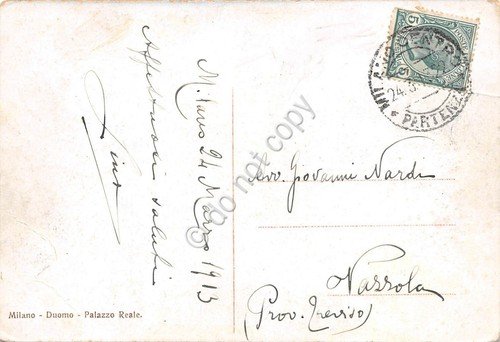 Milano 24 Marzo 1913
Affettuosi saluti
Gino
Avv. Giovanni Nardi
Vazzola
(Prov. Treviso)
MILANO CENTRO
24.3
* PARTENZA
5
5
Milano - Duomo - Palazzo Reale.
© do not copy